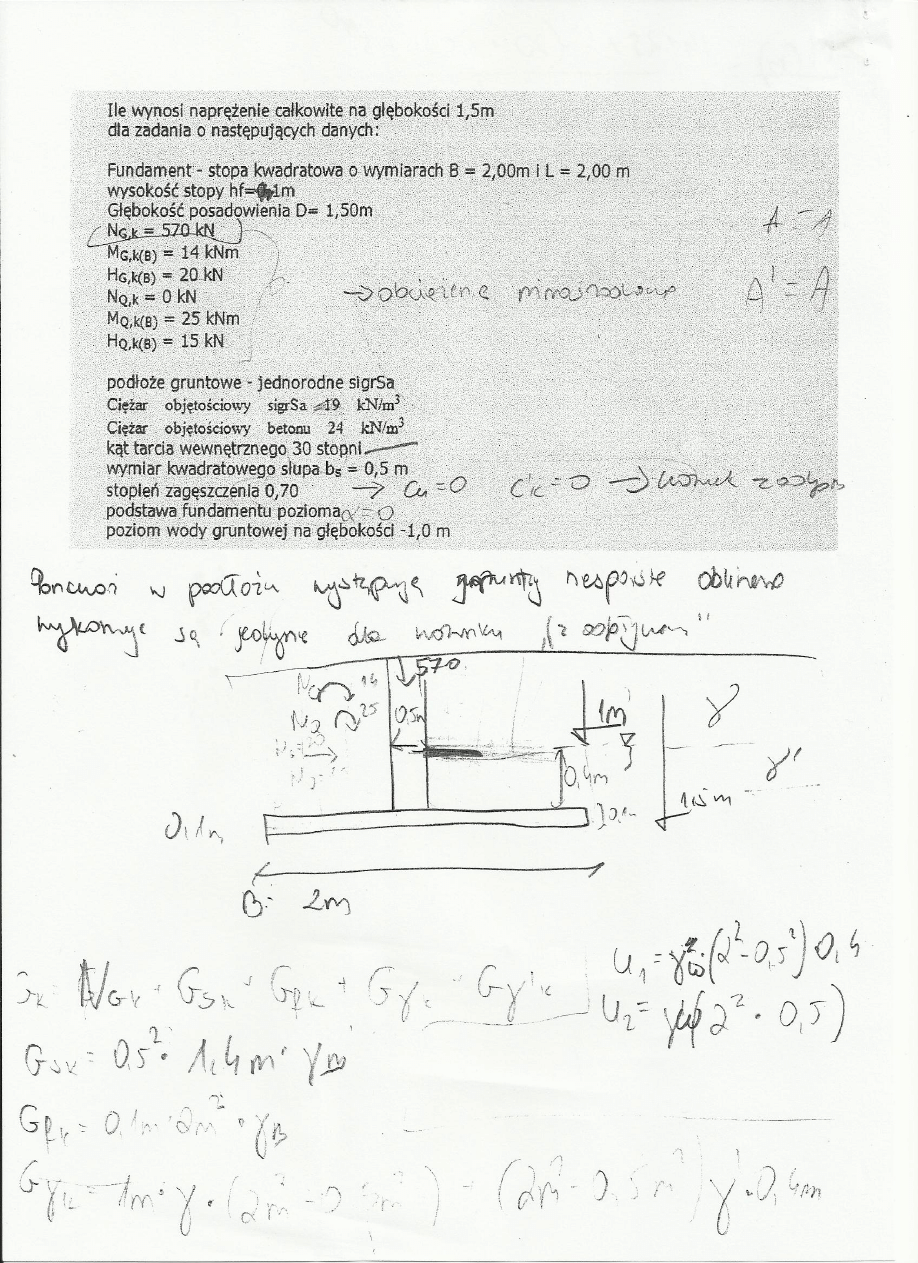 Ile wynosi naprężenie całkowite na głębokości 1,5m
dla zadania o następujących danych:
Fundament - stopa kwadratowa o wymiarach B = 2,00m i L = 2,00 m
wysokość stopy hf= 0,1m
Głębokość posadowienia D= 1,50m
A = A
NG,k = 570 kN
MG,k(B) = 14 kNm
HG,k(B) = 20 kN
NQ,k = 0 kN
→ A' = A
MQ,k(B) = 25 kNm
HQ,k(B) = 15 kN
podłoże gruntowe - jednorodne sigrSa
Ciężar objętościowy sigrSa 19 kN/m³
Ciężar objętościowy betonu 24 kN/m³
kąt tarcia wewnętrznego 30 stopni
wymiar kwadratowego słupa bs = 0,5 m
stopień zagęszczenia 0,70 → Cu=0 C'k=0 →
podstawa fundamentu pozioma α=0
poziom wody gruntowej na głębokości -1,0 m
w podłożu występują grunty
są jedynie dla warunku „z odpływem"
570
14
25
0,5m
1m
γ
γ'
0,4m
1,5m
0,1m
0,1m
B= 2m
U1= γw(2²-0,5²)0,4
NGk + GSk + Gfk + Gγk + Gγ'k
U2= γw(2² · 0,5)
GSk= 0,5² · 1,4m · γB
Gfk= 0,1m·2m² · γB
Gγk= 1m · γ · (2m²-0,5m²) + (2m²-0,5m²)γ'·0,4m